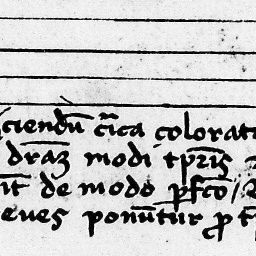 ciendū c̄ica colorat
dr̄aꝫ modi tp̄ris
nt̄ de modo ꝑfc̄o /
eues ponūtur ꝓ